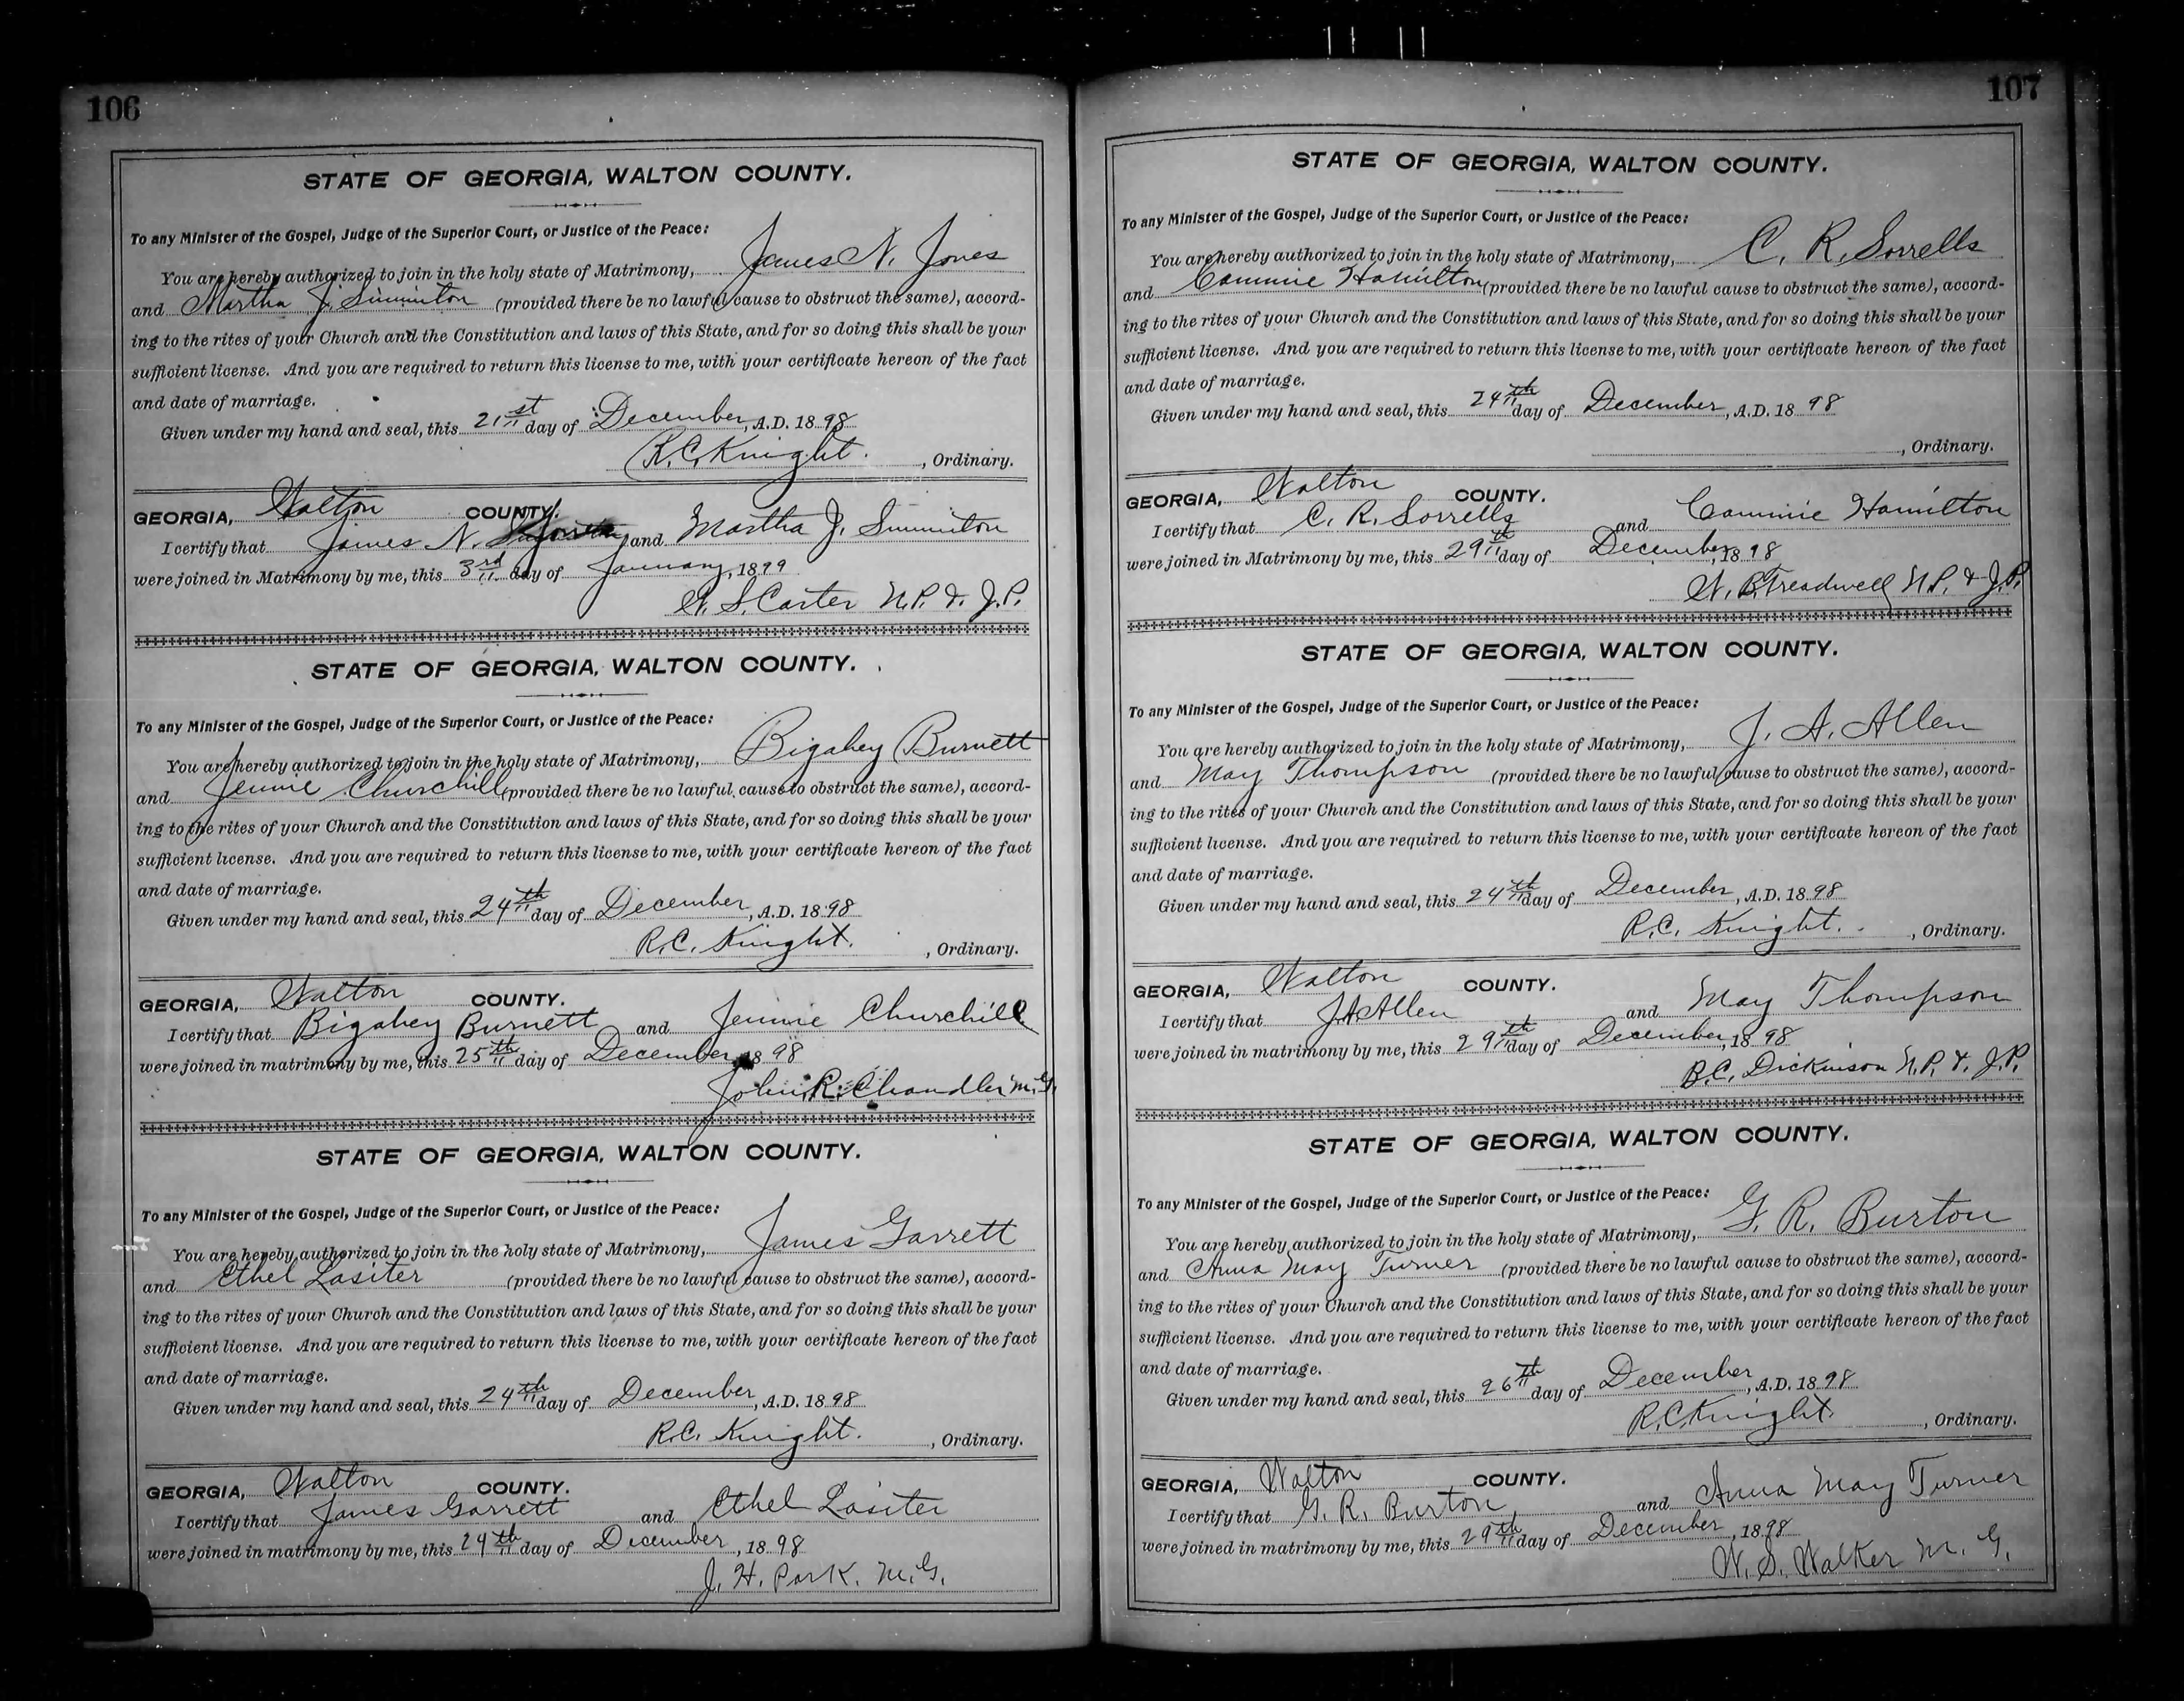 106
STATE OF GEORGIA, WALTON COUNTY.
To any Minister of the Gospel, Judge of the Superior Court, or Justice of the Peace:
You are hereby authorized to join in the holy state of Matrimony, James N. Jones
and Martha J. Simmiton (provided there be no lawful cause to obstruct the same), accord-
ing to the rites of your Church and the Constitution and laws of this State, and for so doing this shall be your
sufficient license. And you are required to return this license to me, with your certificate hereon of the fact
and date of marriage.
Given under my hand and seal, this 21st day of December, A.D. 1898
R.C. Knight. , Ordinary.
GEORGIA, Walton COUNTY.
I certify that James N. and Martha J. Simmiton
were joined in Matrimony by me, this 3rd day of January, 1899
W. S. Carter N.P. & J.P.
STATE OF GEORGIA, WALTON COUNTY.
To any Minister of the Gospel, Judge of the Superior Court, or Justice of the Peace:
You are hereby authorized to join in the holy state of Matrimony, Bigahey Burnett
and Jennie Churchill (provided there be no lawful cause to obstruct the same), accord-
ing to the rites of your Church and the Constitution and laws of this State, and for so doing this shall be your
sufficient license. And you are required to return this license to me, with your certificate hereon of the fact
and date of marriage.
Given under my hand and seal, this 24th day of December, A.D. 1898
R.C. Knight. , Ordinary.
GEORGIA, Walton COUNTY.
I certify that Bigahey Burnett and Jennie Churchill
were joined in matrimony by me, this 25th day of December, 1898
John R. Chandler M.G.
STATE OF GEORGIA, WALTON COUNTY.
To any Minister of the Gospel, Judge of the Superior Court, or Justice of the Peace:
You are hereby authorized to join in the holy state of Matrimony, James Garrett
and Ethel Lasiter (provided there be no lawful cause to obstruct the same), accord-
ing to the rites of your Church and the Constitution and laws of this State, and for so doing this shall be your
sufficient license. And you are required to return this license to me, with your certificate hereon of the fact
and date of marriage.
Given under my hand and seal, this 24th day of December, A.D. 1898
R.C. Knight. , Ordinary.
GEORGIA, Walton COUNTY.
I certify that James Garrett and Ethel Lasiter
were joined in matrimony by me, this 24th day of December, 1898
J. H. Park. M.G.
107
STATE OF GEORGIA, WALTON COUNTY.
To any Minister of the Gospel, Judge of the Superior Court, or Justice of the Peace:
You are hereby authorized to join in the holy state of Matrimony, C. R. Sorrells
and Cammie Hamilton (provided there be no lawful cause to obstruct the same), accord-
ing to the rites of your Church and the Constitution and laws of this State, and for so doing this shall be your
sufficient license. And you are required to return this license to me, with your certificate hereon of the fact
and date of marriage.
Given under my hand and seal, this 24th day of December, A.D. 1898
, Ordinary.
GEORGIA, Walton COUNTY.
I certify that C. R. Sorrells and Cammie Hamilton
were joined in Matrimony by me, this 29th day of December, 1898
W. B. Treadwell N.P. & J.P.
STATE OF GEORGIA, WALTON COUNTY.
To any Minister of the Gospel, Judge of the Superior Court, or Justice of the Peace:
You are hereby authorized to join in the holy state of Matrimony, J. A. Allen
and May Thompson (provided there be no lawful cause to obstruct the same), accord-
ing to the rites of your Church and the Constitution and laws of this State, and for so doing this shall be your
sufficient license. And you are required to return this license to me, with your certificate hereon of the fact
and date of marriage.
Given under my hand and seal, this 24th day of December, A.D. 1898
R.C. Knight. , Ordinary.
GEORGIA, Walton COUNTY.
I certify that J A Allen and May Thompson
were joined in matrimony by me, this 29th day of December, 1898
B.C. Dickinson N.P. & J.P.
STATE OF GEORGIA, WALTON COUNTY.
To any Minister of the Gospel, Judge of the Superior Court, or Justice of the Peace:
You are hereby authorized to join in the holy state of Matrimony, G. R. Burton
and Anna May Turner (provided there be no lawful cause to obstruct the same), accord-
ing to the rites of your Church and the Constitution and laws of this State, and for so doing this shall be your
sufficient license. And you are required to return this license to me, with your certificate hereon of the fact
and date of marriage.
Given under my hand and seal, this 26th day of December, A.D. 1898
R.C. Knight. , Ordinary.
GEORGIA, Walton COUNTY.
I certify that G. R. Burton and Anna May Turner
were joined in matrimony by me, this 29th day of December, 1898
W. S. Walker M. G.